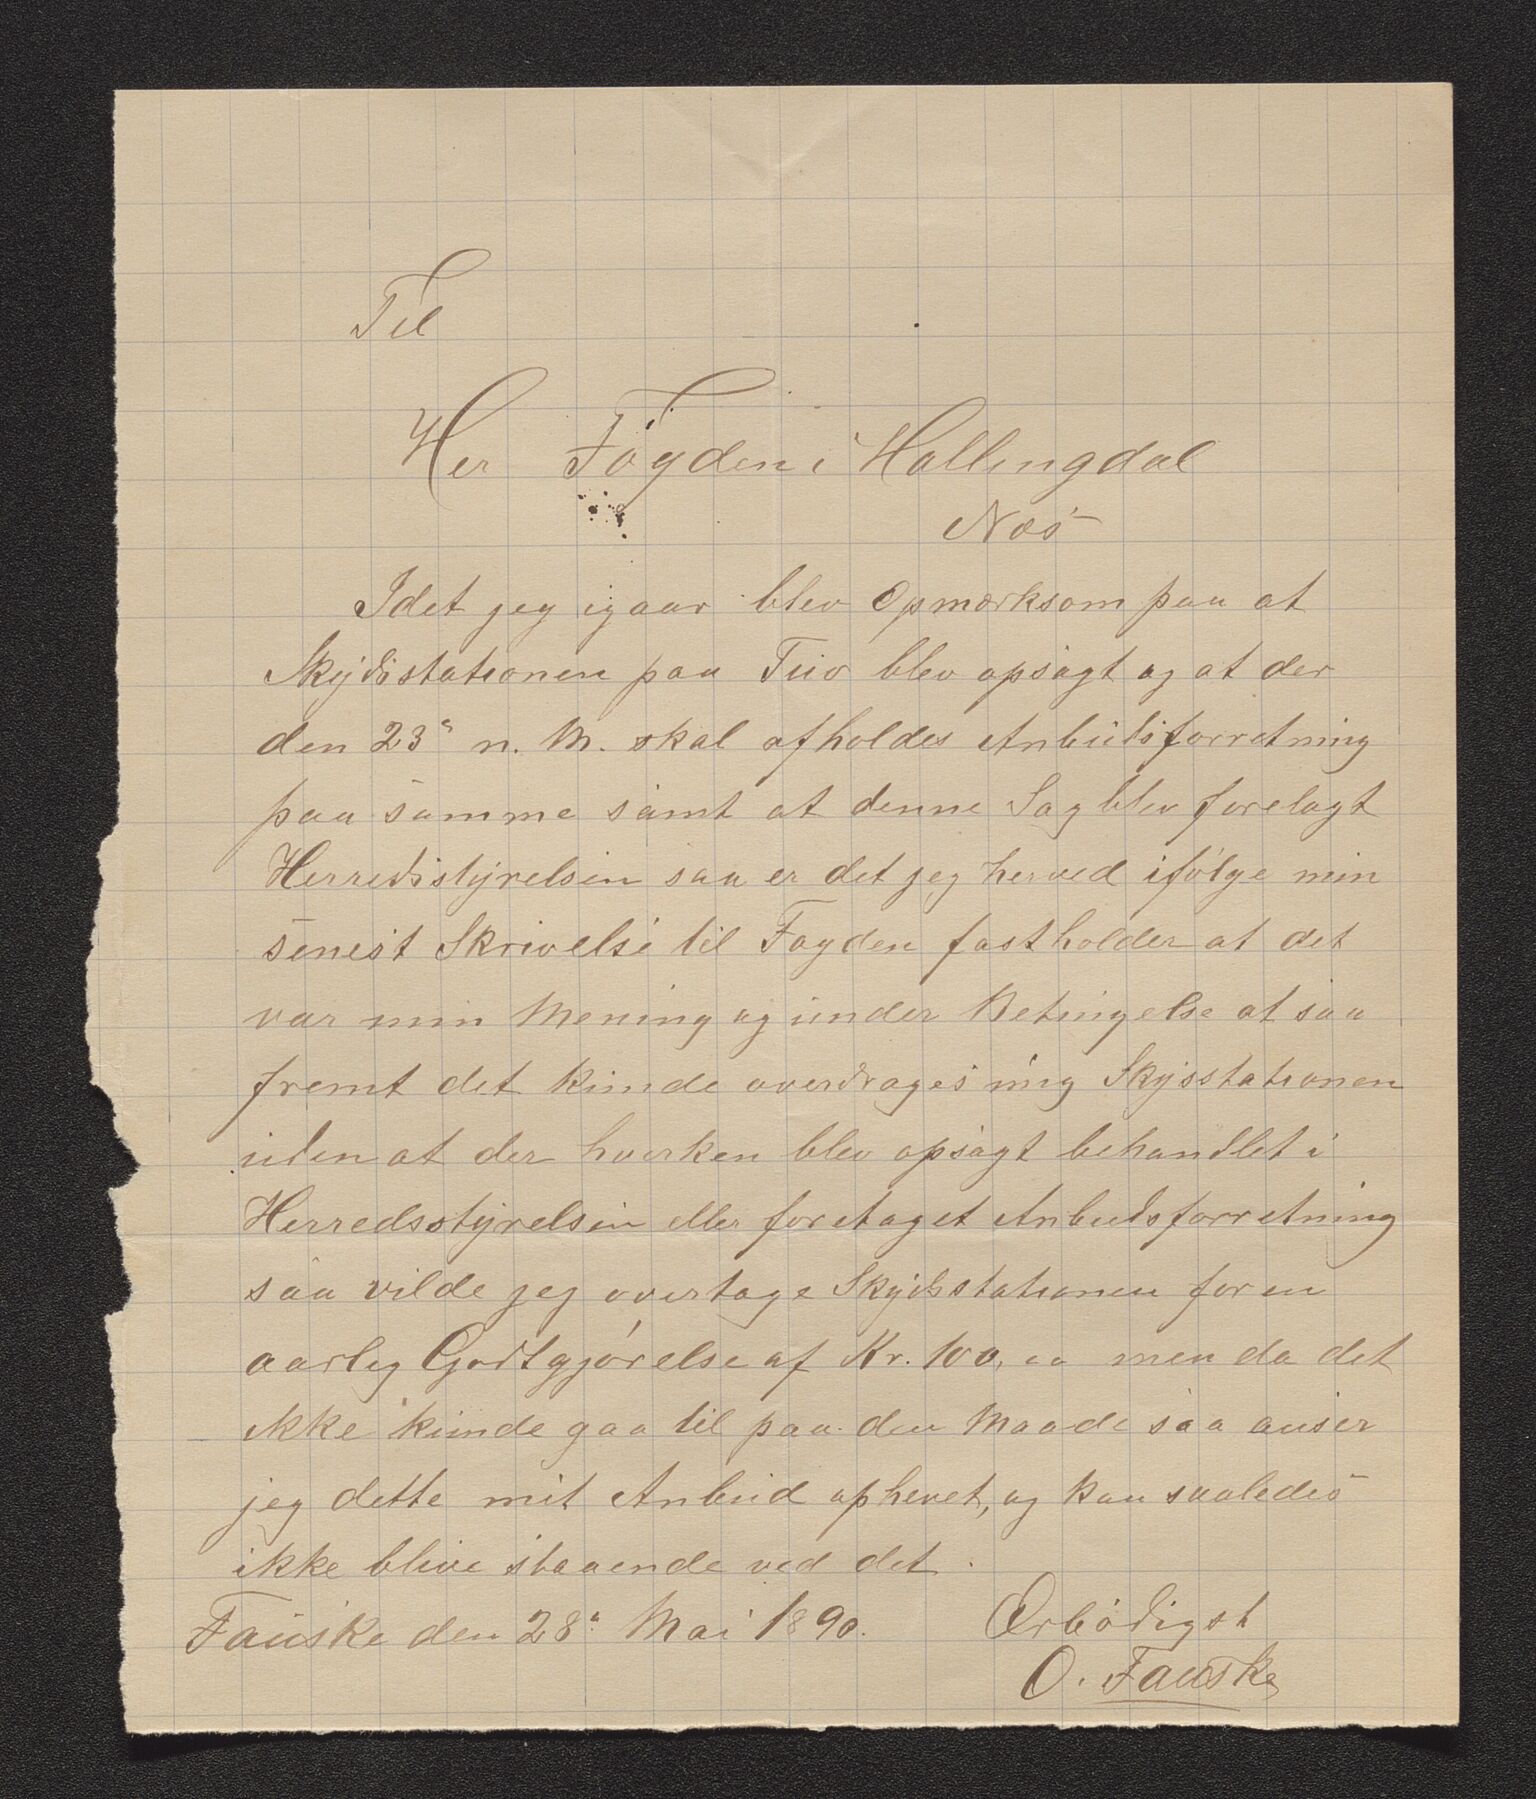 Til
Her Fogden i Hallingdal
Næs
Idet jeg igaar blev Opmærksom paa at
Skydsstationen paa Tuv blev opsagt og at der
den 23de n. M. skal afholdes Anbudsforretning
paa samme samt at denne Sag blev forelagt
Herredsstyrelsen saa er det jeg herved ifølge min
senest Skrivelse til Fogden fastholder at det
var min Mening og under Betingelse at saa
fremt det kunde overdrages mig Skysstationen
uden at der hverken blev opsagt behandlet i
Herredsstyrelsen eller foretaget Anbudsforretning
saa vilde jeg overtage Skydsstationen for en
aarlig Godtgjørelse af Kr. 100,00 men da det
ikke kunde gaa til paa den Maade saa anser
jeg dette mit Anbud ophevet, og kan saaledes
ikke blive staaende ved det.
Fauske den 28de Mai 1890. Ærbødigst
O. Fauske